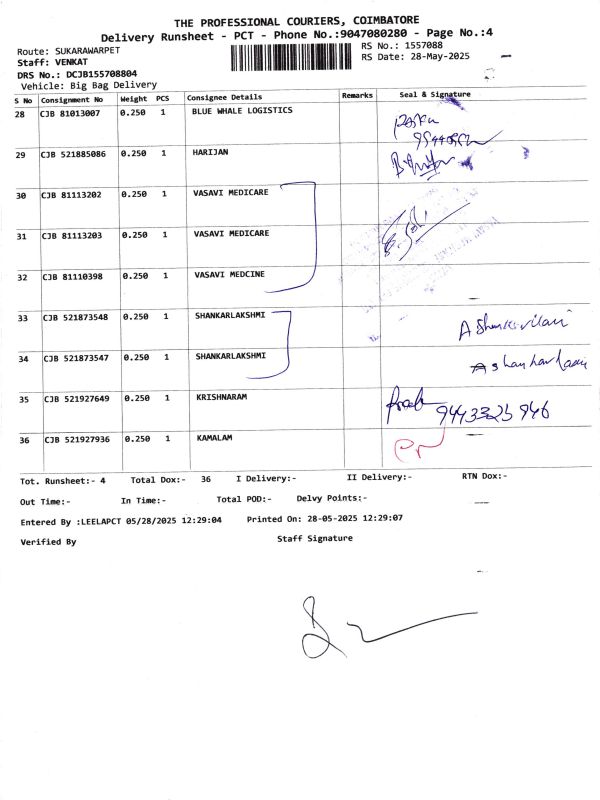 THE PROFESSIONAL COURIERS, COIMBATORE
Delivery Runsheet - PCT - Phone No.:9047080280 - Page No.:4
Route: SUKARAWARPET RS No.: 1557088
Staff: VENKAT RS Date: 28-May-2025
DRS No.: DCJB155708804
Vehicle: Big Bag Delivery
S No Consignment No Weight PCS Consignee Details Remarks Seal & Signature
28 CJB 81013007 0.250 1 BLUE WHALE LOGISTICS
29 CJB 521885086 0.250 1 HARIJAN
30 CJB 81113202 0.250 1 VASAVI MEDICARE
31 CJB 81113203 0.250 1 VASAVI MEDICARE
32 CJB 81110398 0.250 1 VASAVI MEDCINE
33 CJB 521873548 0.250 1 SHANKARLAKSHMI
34 CJB 521873547 0.250 1 SHANKARLAKSHMI
35 CJB 521927649 0.250 1 KRISHNARAM 9443325946
36 CJB 521927936 0.250 1 KAMALAM
Tot. Runsheet:- 4 Total Dox:- 36 I Delivery:- II Delivery:- RTN Dox:-
Out Time:- In Time:- Total POD:- Delvy Points:-
Entered By :LEELAPCT 05/28/2025 12:29:04 Printed On: 28-05-2025 12:29:07
Verified By Staff Signature